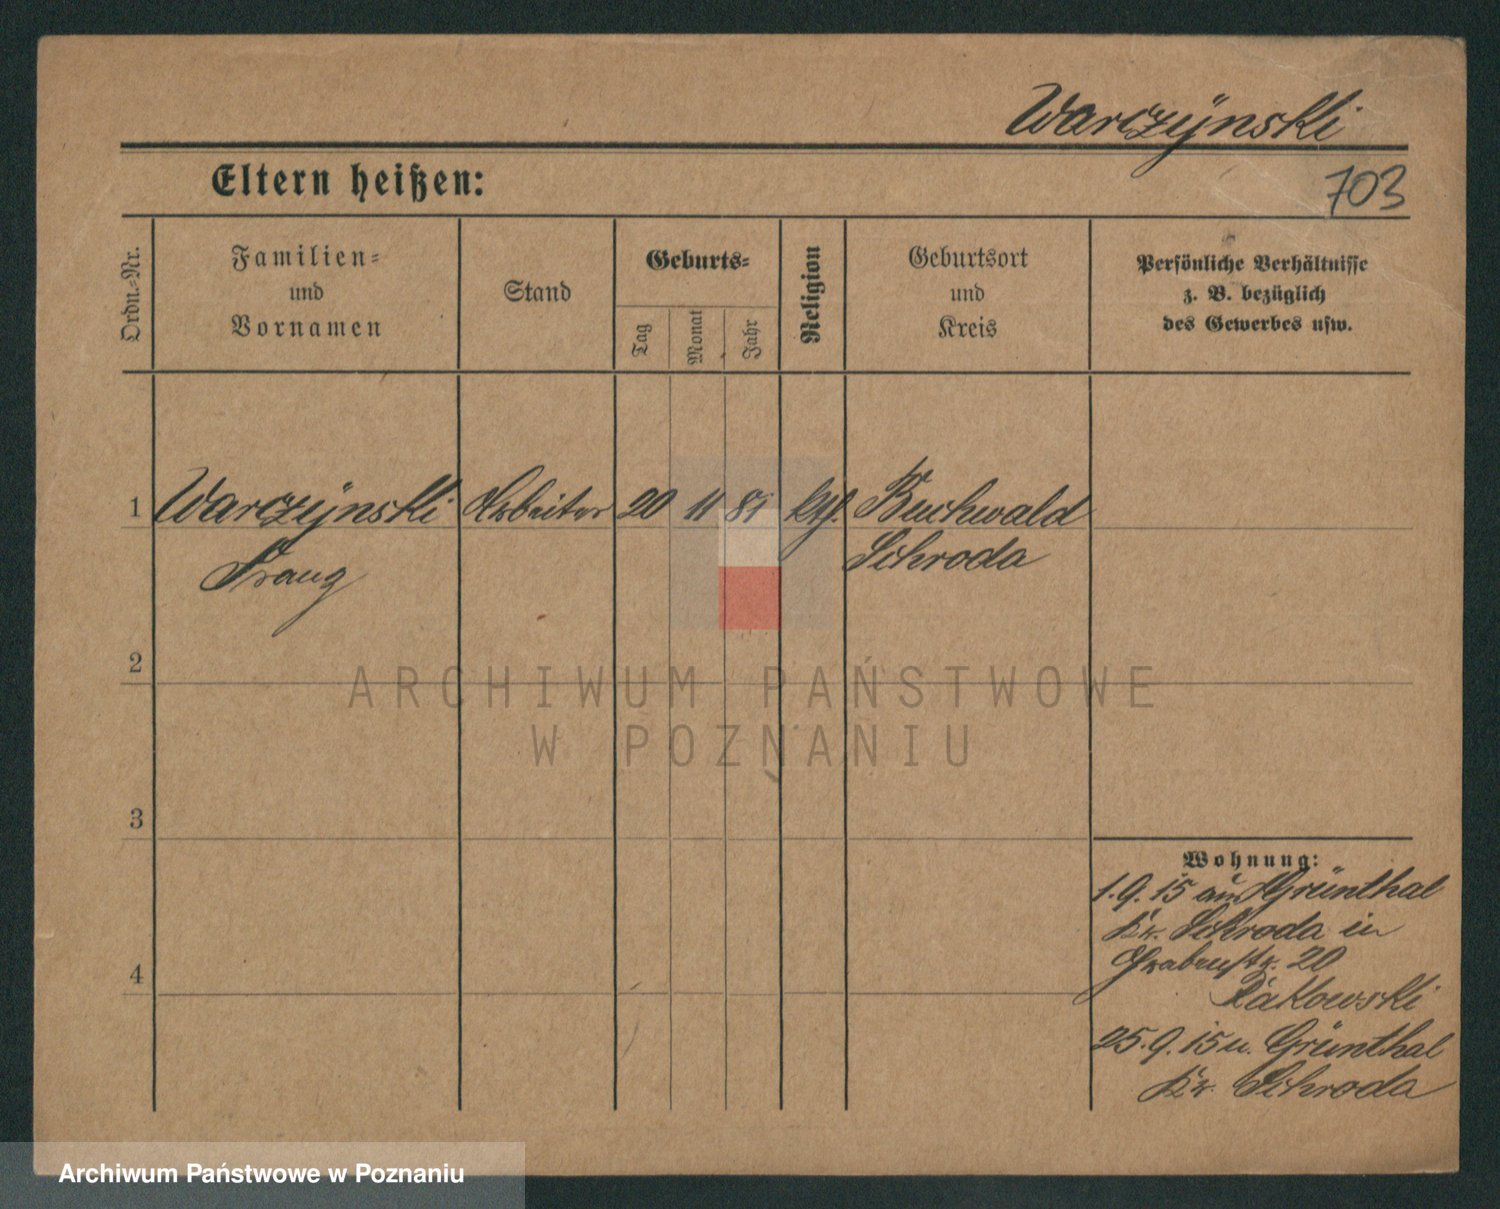 Warczÿnski
Eltern heißen:
703
Ordn.-Nr.
Familien-
und
Vornamen
Stand
Geburts-
Tag
Monat
Jahr
Religion
Geburtsort
und
Kreis
Persönliche Verhältnisse
z. B. bezüglich
des Gewerbes usw.
1 Warczÿnski Arbeiter 20 11 81 kth. Buchwald
Franz Schroda
2
ARCHIWUM PAŃSTWOWE
W POZNANIU
3
Wohnung:
1.9.15 aus Grünthal
Kr. Schroda in
Grabenstr. 20
Rakowski
4
25.9.15 n. Grünthal
Kr. Schroda
Archiwum Państwowe w Poznaniu